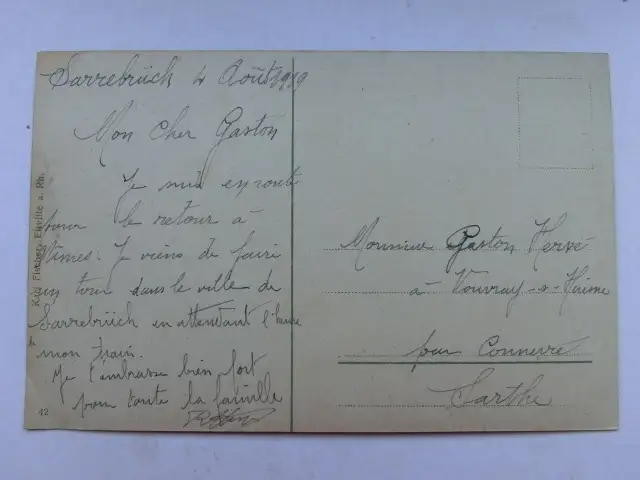 Sarrebrück 4 Août 1919
Mon Cher Gaston
Je suis en route
pour le retour à
Nimes. Je viens de faire
un tour dans le ville de
Sarrebrück en attendant l'heure
de mon train.
Je t'embrasse bien fort
pour toute la famille
Monsieur Gaston Hervé
à Vouvray-s-Huisne
par Connerré
Sarthe
Fischer, Eltville a. Rh.
12